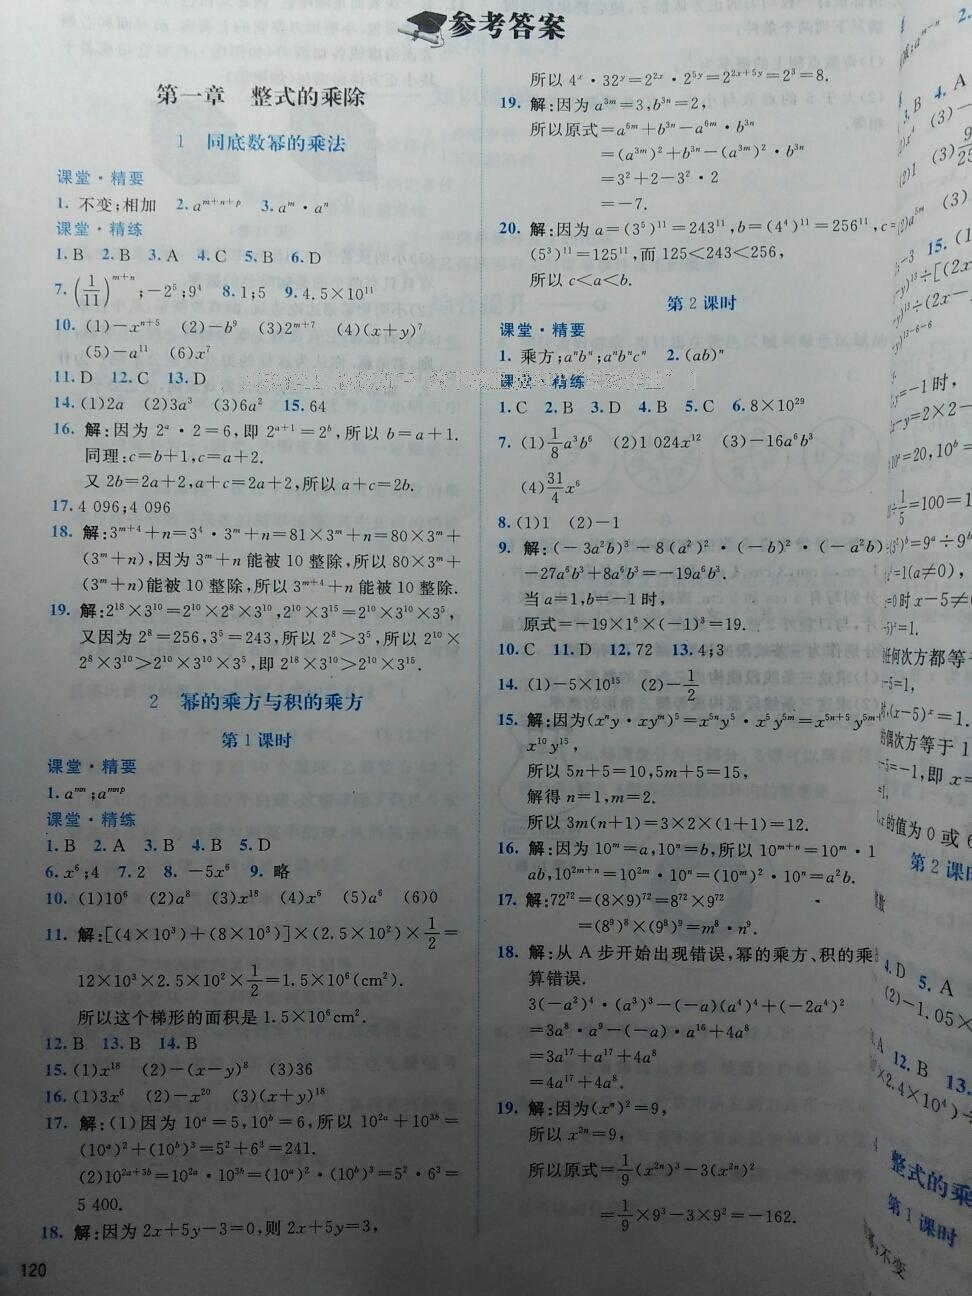 参考答案
第一章 整式的乘除
1 同底数幂的乘法
课堂·精要
1. 不变;相加 2. a^{m+n+p} 3. a^m·a^n
课堂·精练
1. B 2. B 3. A 4. C 5. B 6. D
7. (1/11)^{m+n};-2^5;9^4 8. 1;5 9. 4.5×10^{11}
10. (1)-x^{n+5} (2)-b^9 (3)2^{m+7} (4)(x+y)^7
(5)-a^{11} (6)x^7
11. D 12. C 13. D
14. (1)2a (2)3a^3 (3)6a^2 15. 64
16. 解:因为 2^a·2=6,即 2^{a+1}=2^b,所以 b=a+1.
同理:c=b+1,c=a+2.
又 2b=2a+2,a+c=2a+2,所以 a+c=2b.
17. 4 096;4 096
18. 解:3^{m+4}+n=3^4·3^m+n=81×3^m+n=80×3^m+
(3^m+n),因为 3^m+n 能被 10 整除,所以 80×3^m+
(3^m+n)能被 10 整除,所以 3^{m+4}+n 能被 10 整除.
19. 解:2^{18}×3^{10}=2^{10}×2^8×3^{10},2^{10}×3^{15}=2^{10}×3^{10}×3^5,
又因为 2^8=256,3^5=243,所以 2^8>3^5,所以 2^{10}×
2^8×3^{10}>2^{10}×3^{10}×3^5,即 2^{18}×3^{10}>2^{10}×3^{15}.
2 幂的乘方与积的乘方
第 1 课时
课堂·精要
1. a^{mn};a^{mnp}
课堂·精练
1. B 2. A 3. B 4. B 5. D
6. x^6;4 7. 2 8. -5x^6 9. 略
10. (1)10^6 (2)a^8 (3)x^{18} (4)x^6 (5)a^6 (6)0
11. 解:[(4×10^3)+(8×10^3)]×(2.5×10^2)×1/2=
12×10^3×2.5×10^2×1/2=1.5×10^6(cm^2).
所以这个梯形的面积是 1.5×10^6cm^2.
12. B 13. B 14. B
15. (1)x^{18} (2)-(x-y)^8 (3)36
16. (1)3x^6 (2)-x^{20} (3)(x+y)^{18}
17. 解:(1)因为 10^a=5,10^b=6,所以 10^{2a}+10^{3b}=
(10^a)^2+(10^b)^3=5^2+6^3=241.
(2)10^{2a+3b}=10^{2a}·10^{3b}=(10^a)^2·(10^b)^3=5^2·6^3=
5 400.
18. 解:因为 2x+5y-3=0,则 2x+5y=3,
120
所以 4^x·32^y=2^{2x}·2^{5y}=2^{2x+5y}=2^3=8.
19. 解:因为 a^{3m}=3,b^{3n}=2,
所以原式=a^{6m}+b^{3n}-a^{6m}·b^{3n}
=(a^{3m})^2+b^{3n}-(a^{3m})^2·b^{3n}
=3^2+2-3^2·2
=-7.
20. 解:因为 a=(3^5)^{11}=243^{11},b=(4^4)^{11}=256^{11},c=
(5^3)^{11}=125^{11},而 125<243<256,
所以 c<a<b.
第 2 课时
课堂·精要
1. 乘方;a^nb^n;a^nb^nc^n 2. (ab)^n
课堂·精练
1. C 2. B 3. D 4. B 5. C 6. 8×10^{29}
7. (1)1/8a^3b^6 (2)1 024x^{12} (3)-16a^6b^3
(4)31/4x^6
8. (1)1 (2)-1
9. 解:(-3a^2b)^3-8(a^2)^2·(-b)^2·(-a^2b)=
-27a^6b^3+8a^6b^3=-19a^6b^3.
当 a=1,b=-1 时,
原式=-19×1^6×(-1)^3=19.
10. C 11. D 12. 72 13. 4;3
14. (1)-5×10^{15} (2)-1/2
15. 解:因为(x^ny·xy^m)^5=x^{5n}y^5·x^5y^{5m}=x^{5n+5}y^{5m+
x^{10}y^{15},
所以 5n+5=10,5m+5=15,
解得 n=1,m=2.
所以 3m(n+1)=3×2×(1+1)=12.
16. 解:因为 10^m=a,10^n=b,所以 10^{m+n}=10^m·1
ab,10^{2m+n}=10^{2m}·10^n=(10^m)^2·10^n=a^2b.
17. 解:72^{72}=(8×9)^{72}=8^{72}×9^{72}
=(8^9)^8×(9^8)^9=m^8·n^9.
18. 解:从 A 步开始出现错误,幂的乘方、积的乘
算错误.
3(-a^2)^4·(a^3)^3-(-a)(a^4)^4+(-2a^4)^2
=3a^8·a^9-(-a)·a^{16}+4a^8
=3a^{17}+a^{17}+4a^8
=4a^{17}+4a^8.
19. 解:因为(x^n)^2=9,
所以 x^{2n}=9,
所以原式=1/9(x^{2n})^3-3(x^{2n})^2
=1/9×9^3-3×9^2=-162.
3. B 4. A
15. (1
x=-1 时,
x-y=2×2-
=20,10^b=
=100=1
=1(a≠0),
=0时 x-5≠
任何次方都等于
-5=1,
时,(x-5)^x=1.
的偶次方等于 1
-5=-1,即 x=
的值为 0 或 6
第 2 课时
4. D 5. A
(2)-1.05×
12. B 13.
×2.4×10^4)÷
4 整式的乘
第 1 课时
不变